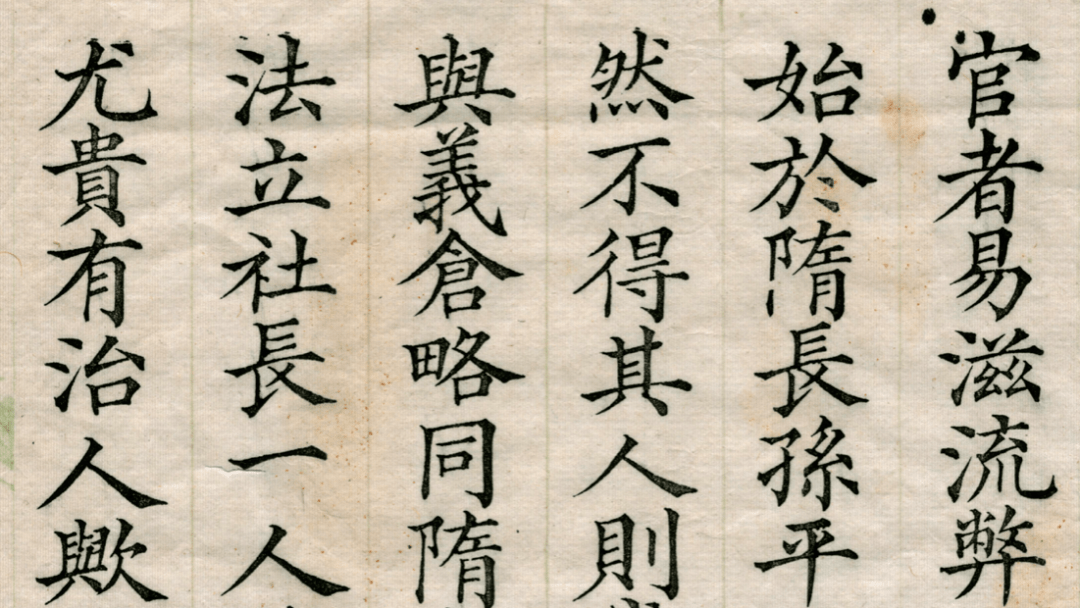 官者易滋流弊
始於隋長孫平
然不得其人則
與義倉略同隋
法立社長一人
尤貴有治人歟